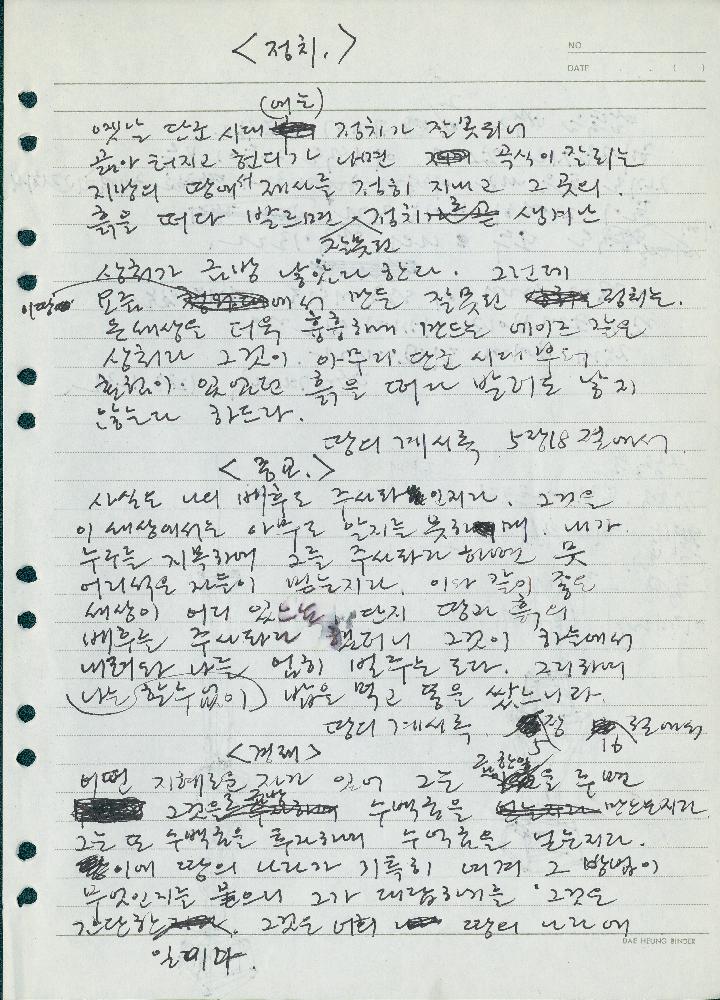 <정치.>
NO
DATE . . ( )
(에는)
옛날 단군 시대 정치가 잘못되어
곪아 터지고 헌데가 나면 곡식이 잘되는
지방의 땅에서 제사를 정히 지내고 그 곳의
흙을 떠다 발르면 정치가 생겨난
잘못된
상처가 금방 낳았다 한다. 그런데
이땅
모름 에서 만든 잘못된 정치는.
온 세상을 더욱 흉흉하게 만드는 에이즈 같은
상처라 그것이 아무리 단군 시대 부터
효험이 있었던 흙을 떠다 발러도 낳지
않는다 하드라.
땅의 계시록 5장 18절에서
<종교.>
사실은 나의 배후도 주사파인지라. 그것을
이 세상에서는 아무도 알지를 못하매. 내가
누구를 지목하며 그를 주사파라 하면 뭇
어리석은 자들이 믿는지라. 이와 같이 좋은
세상이 어디 있느뇨 단지 땅과 흙의
배후를 주사파라 했더니 그것이 하늘에서
내려와 나를 엄히 벌주는도다. 그리하여
나는 (할수없이) 밥을 먹고 똥을 쌌느니라.
땅의 계시록 장 절에서
5 16
<경제>
어떤 지혜로운 자가 있어 그는 을 투면
그것을 금방 수백금을 만드는지라
그는 또 수백금을 투자하여 수억금을 넣는지라.
이에 땅의 나라가 기특히 여겨 그 방법이
무엇인지를 물으니 그가 대답하기를 '그것은
간단한 . 그것은 너희 땅의 나라에
일테마.
DAE HEUNG BINDER